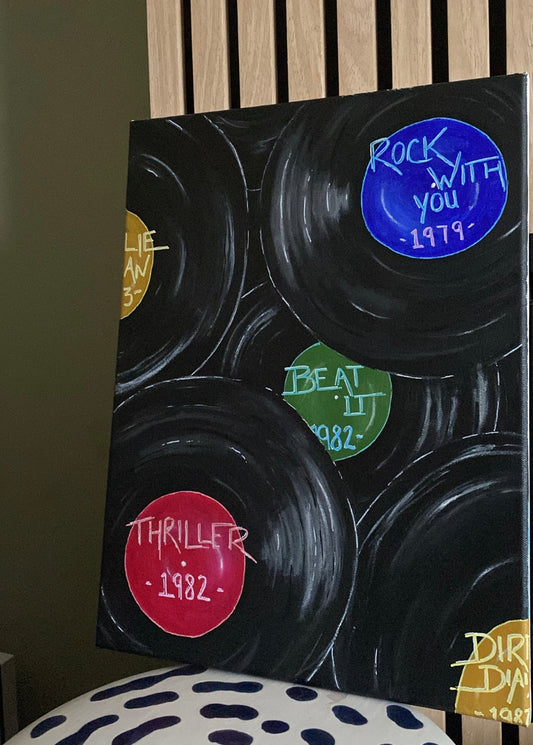 ROCK
WITH
YOU
-1979-
LIE
AN
3-
BEAT
IT
1982-
THRILLER
-1982-
DIR
DIA
-1981